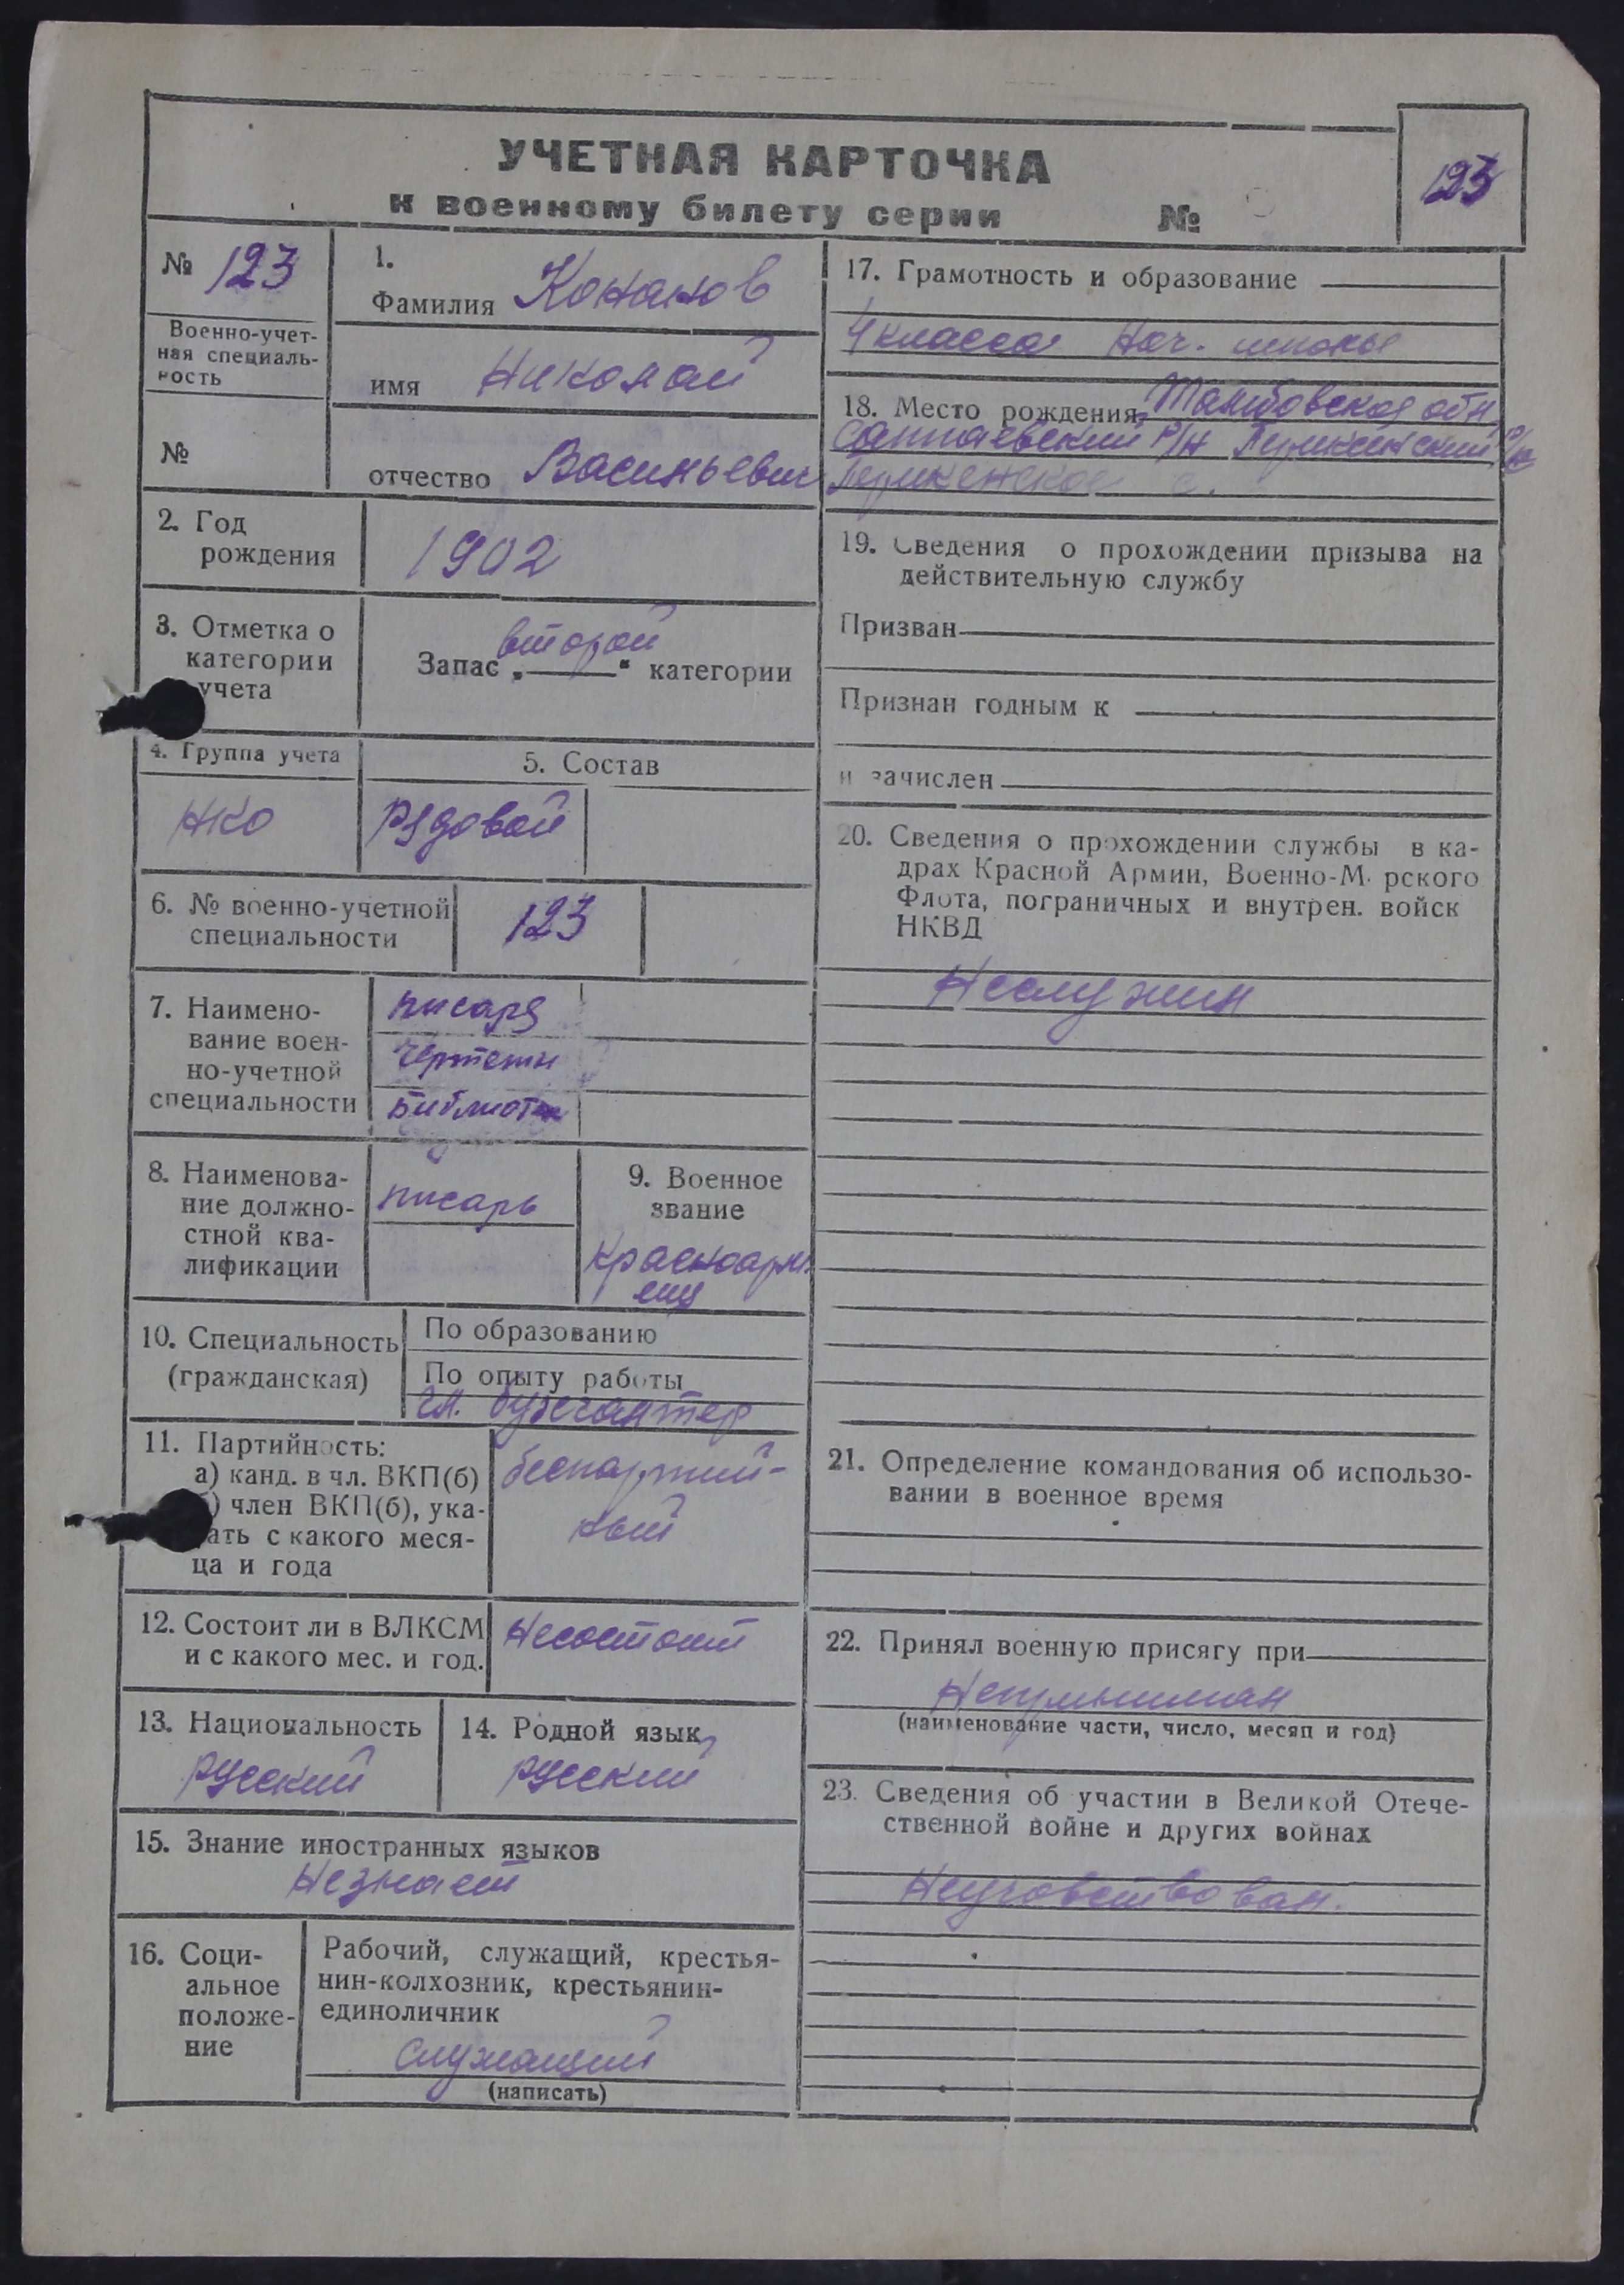 УЧЕТНАЯ КАРТОЧКА
к военному билету серии №
123
№ 123
Военно-учет-
ная специаль-
ность
№
1.
Фамилия Конанов
имя Николай
отчество Васильевич
2. Год
рождения
1902
3. Отметка о
категории
учета
Запас „второй“ категории
4. Группа учета
НКО
5. Состав
Рядовой
6. № военно-учетной
специальности
123
7. Наимено-
вание воен-
но-учетной
специальности
писаря
Чертежн
Библиотек
8. Наименова-
ние должно-
стной ква-
лификации
писарь
9. Военное
звание
Красноарм.
еец
10. Специальность
(гражданская)
По образованию
По опыту работы
гл. бухгалтер
11. Партийность:
а) канд. в чл. ВКП(б)
) член ВКП(б), ука-
ать с какого меся-
ца и года
беспартий-
ный
12. Состоит ли в ВЛКСМ
и с какого мес. и год.
Несостоит
13. Национальность
русский
14. Родной язык
русский
15. Знание иностранных языков
Незнает
16. Соци-
альное
положе-
ние
Рабочий, служащий, крестья-
нин-колхозник, крестьянин-
единоличник
Служащий
(написать)
17. Грамотность и образование
4 класса Нач. школы
18. Место рождения Тамбовская обл
р/н
с.
19. Сведения о прохождении призыва на
действительную службу
Призван
Признан годным к
и зачислен
20. Сведения о прохождении службы в ка-
драх Красной Армии, Военно-М рского
Флота, пограничных и внутрен. войск
НКВД
Неслужил
21. Определение командования об использо-
вании в военное время
22. Принял военную присягу при
Непринимал
(наименование части, число, месяц и год)
23. Сведения об участии в Великой Отече-
ственной войне и других войнах
Неучавствовал.